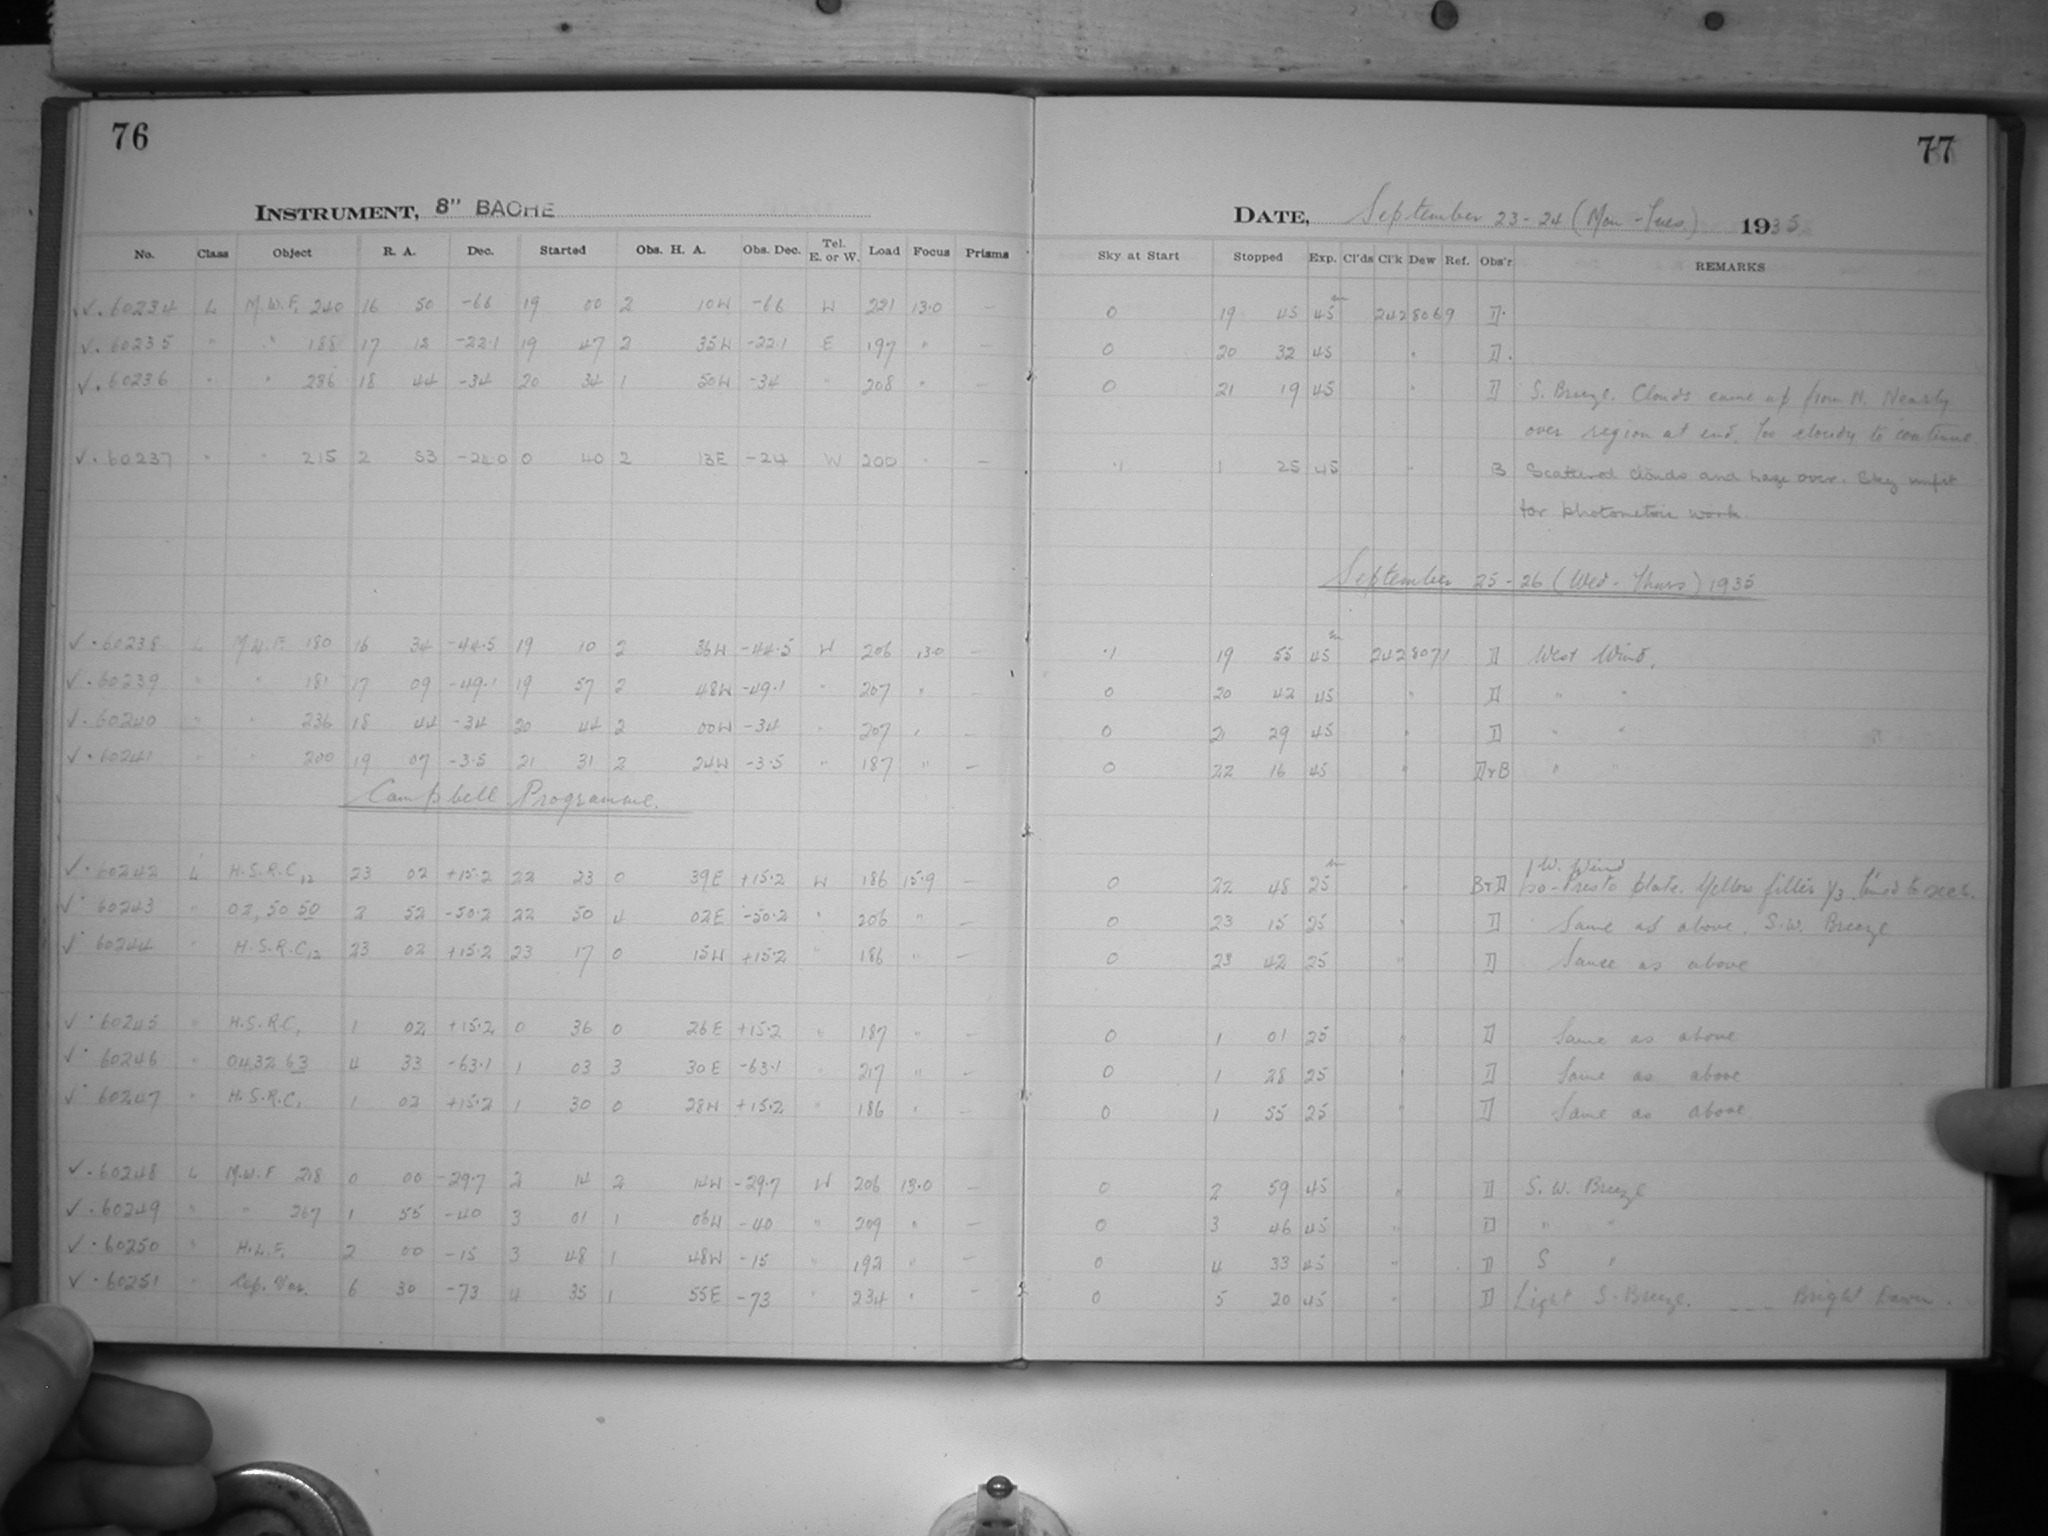 76
INSTRUMENT, 8" BACHE
No. Class Object R. A. Dec. Started Obs. H. A. Obs. Dec. Tel. E. or W. Load Focus Prisms
✓. 60234 L M.W.F. 240 16 50 -66 19 00 2 10W -66 W 221 13.0 —
✓. 60235 " " 188 17 12 -22.1 19 47 2 35W -22.1 E 197 " —
✓. 60236 " " 236 18 44 -34 20 34 1 50W -34 " 208 " —
✓. 60237 " " 215 2 53 -24.0 0 40 2 13E -24 W 200 " —
✓. 60238 L M.W.F. 180 16 34 -44.5 19 10 2 36W -44.5 W 206 13.0 —
✓. 60239 " " 181 17 09 -49.1 19 57 2 48W -49.1 " 207 " —
✓. 60240 " " 236 18 44 -34 20 44 2 00W -34 " 207 " —
✓. 60241 " " 200 19 07 -3.5 21 31 2 24W -3.5 " 187 " —
Campbell Programme.
✓. 60242 L H.S.R.C12 23 02 +15.2 22 23 0 39E +15.2 W 186 15.9 —
✓. 60243 " 02, 50 50 2 52 -50.2 22 50 4 02E -50.2 " 206 " —
✓. 60244 " H.S.R.C12 23 02 +15.2 23 17 0 15W +15.2 " 186 " —
✓. 60245 " H.S.R.C1 1 02 +15.2 0 36 0 26E +15.2 " 187 " —
✓. 60246 " 0432 63 4 33 -63.1 1 03 3 30E -63.1 " 217 " —
✓. 60247 " H.S.R.C1 1 02 +15.2 1 30 0 28W +15.2 " 186 " —
✓. 60248 L M.W.F 218 0 00 -29.7 2 14 2 14W -29.7 W 206 13.0 —
✓. 60249 " " 267 1 55 -40 3 01 1 06W -40 " 209 " —
✓. 60250 " H.L.F. 2 00 -15 3 48 1 48W -15 " 192 " —
✓. 60251 " Cep. Var. 6 30 -73 4 35 1 55E -73 " 234 " —
77
DATE, September 23-24 (Mon - Tues.) 1935
Sky at Start Stopped Exp. Cl'ds Cl'k Dew Ref. Obs'r REMARKS
0 19 45 45m 2428069 D.
0 20 32 45 " D.
0 21 19 45 " D S. Breeze. Clouds came up from N. Nearly
over region at end. Too cloudy to continue.
.1 1 25 45 " B Scattered clouds and haze over. Sky unfit
for photometric work.
September 25-26 (Wed - Thurs) 1935
.1 19 55 45m 2428071 D West Wind.
0 20 42 45 " D " "
0 21 29 45 " D " "
0 22 16 45 " D+B " "
W. Wind
0 22 48 25m " B+D Iso-Presto plate. Yellow filter
0 23 15 25 " D Same as above. S.W. Breeze
0 23 42 25 " D Same as above
0 1 01 25 " D Same as above
0 1 28 25 " D Same as above
0 1 55 25 " D Same as above
0 2 59 45 " D S. W. Breeze
0 3 46 45 " D " "
0 4 33 45 " D S "
0 5 20 45 " D Light S-Breeze. --- Bright Dawn.